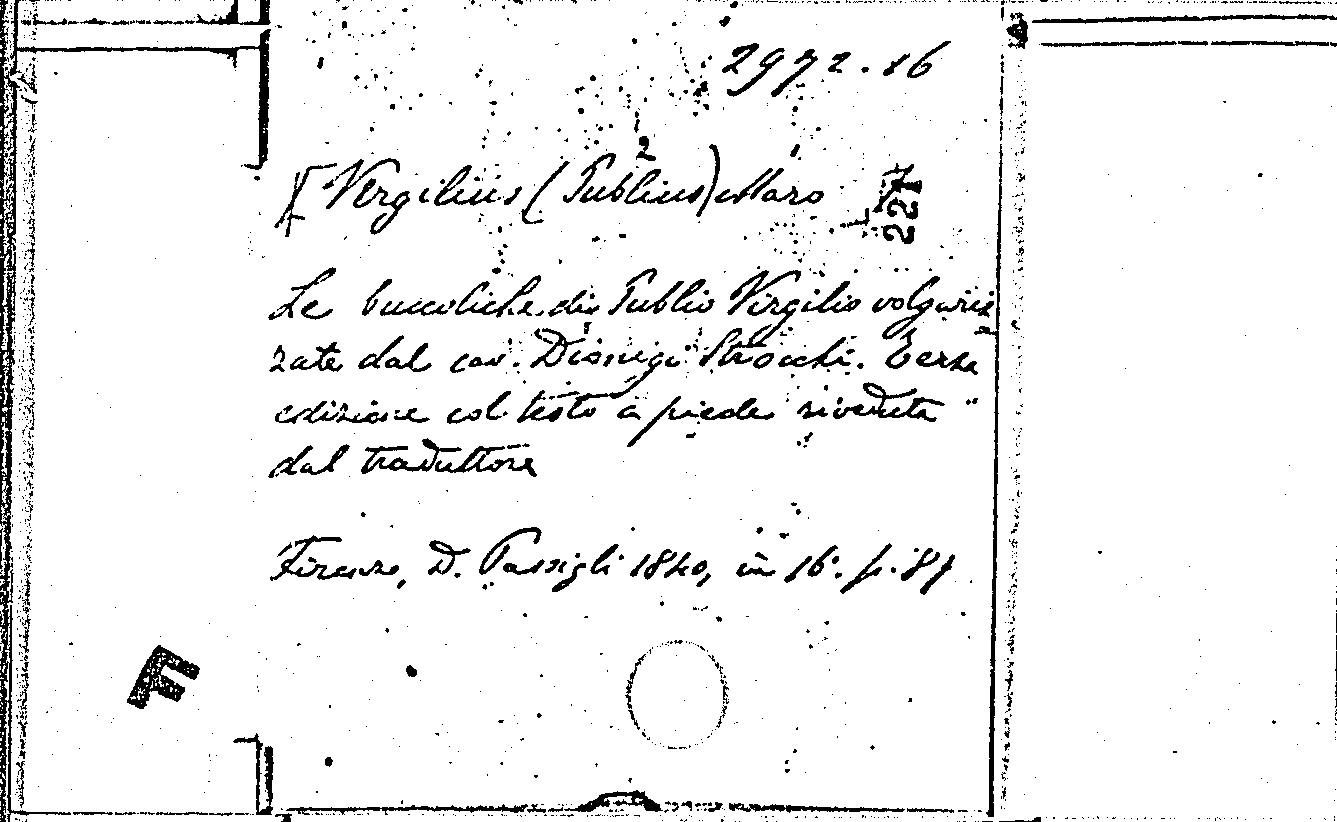 2972.16
2
[Vergilius (Publius) Maro
227
Le buccoliche di Publio Virgilio volgariz
zate dal cav. Dionigi Strocchi. Terza
edizione col testo a piede riveduta
dal traduttore
Firenze, D. Passigli 1840, in 16°. p. 81
F